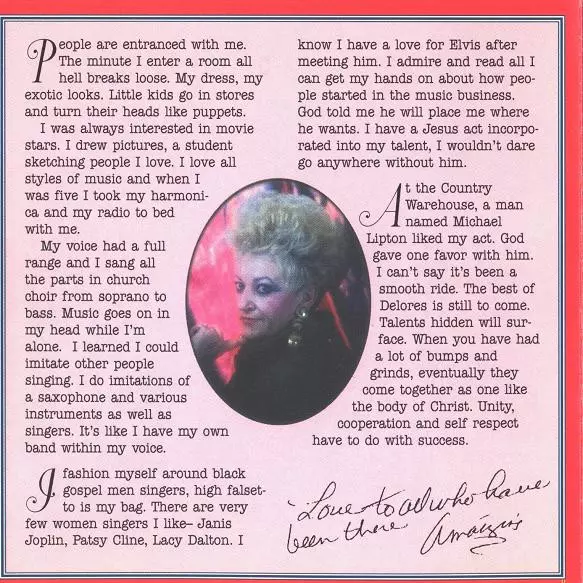 People are entranced with me.
The minute I enter a room all
hell breaks loose. My dress, my
exotic looks. Little kids go in stores
and turn their heads like puppets.
I was always interested in movie
stars. I drew pictures, a student
sketching people I love. I love all
styles of music and when I
was five I took my harmoni-
ca and my radio to bed
with me.
My voice had a full
range and I sang all
the parts in church
choir from soprano to
bass. Music goes on in
my head while I'm
alone. I learned I could
imitate other people
singing. I do imitations of
a saxophone and various
instruments as well as
singers. It's like I have my own
band within my voice.
I fashion myself around black
gospel men singers, high falset-
to is my bag. There are very
few women singers I like– Janis
Joplin, Patsy Cline, Lacy Dalton. I
know I have a love for Elvis after
meeting him. I admire and read all I
can get my hands on about how peo-
ple started in the music business.
God told me he will place me where
he wants. I have a Jesus act incorpo-
rated into my talent, I wouldn't dare
go anywhere without him.
At the Country
Warehouse, a man
named Michael
Lipton liked my act. God
gave one favor with him.
I can't say it's been a
smooth ride. The best of
Delores is still to come.
Talents hidden will sur-
face. When you have had
a lot of bumps and
grinds, eventually they
come together as one like
the body of Christ. Unity,
cooperation and self respect
have to do with success.
Love to all who have
been there